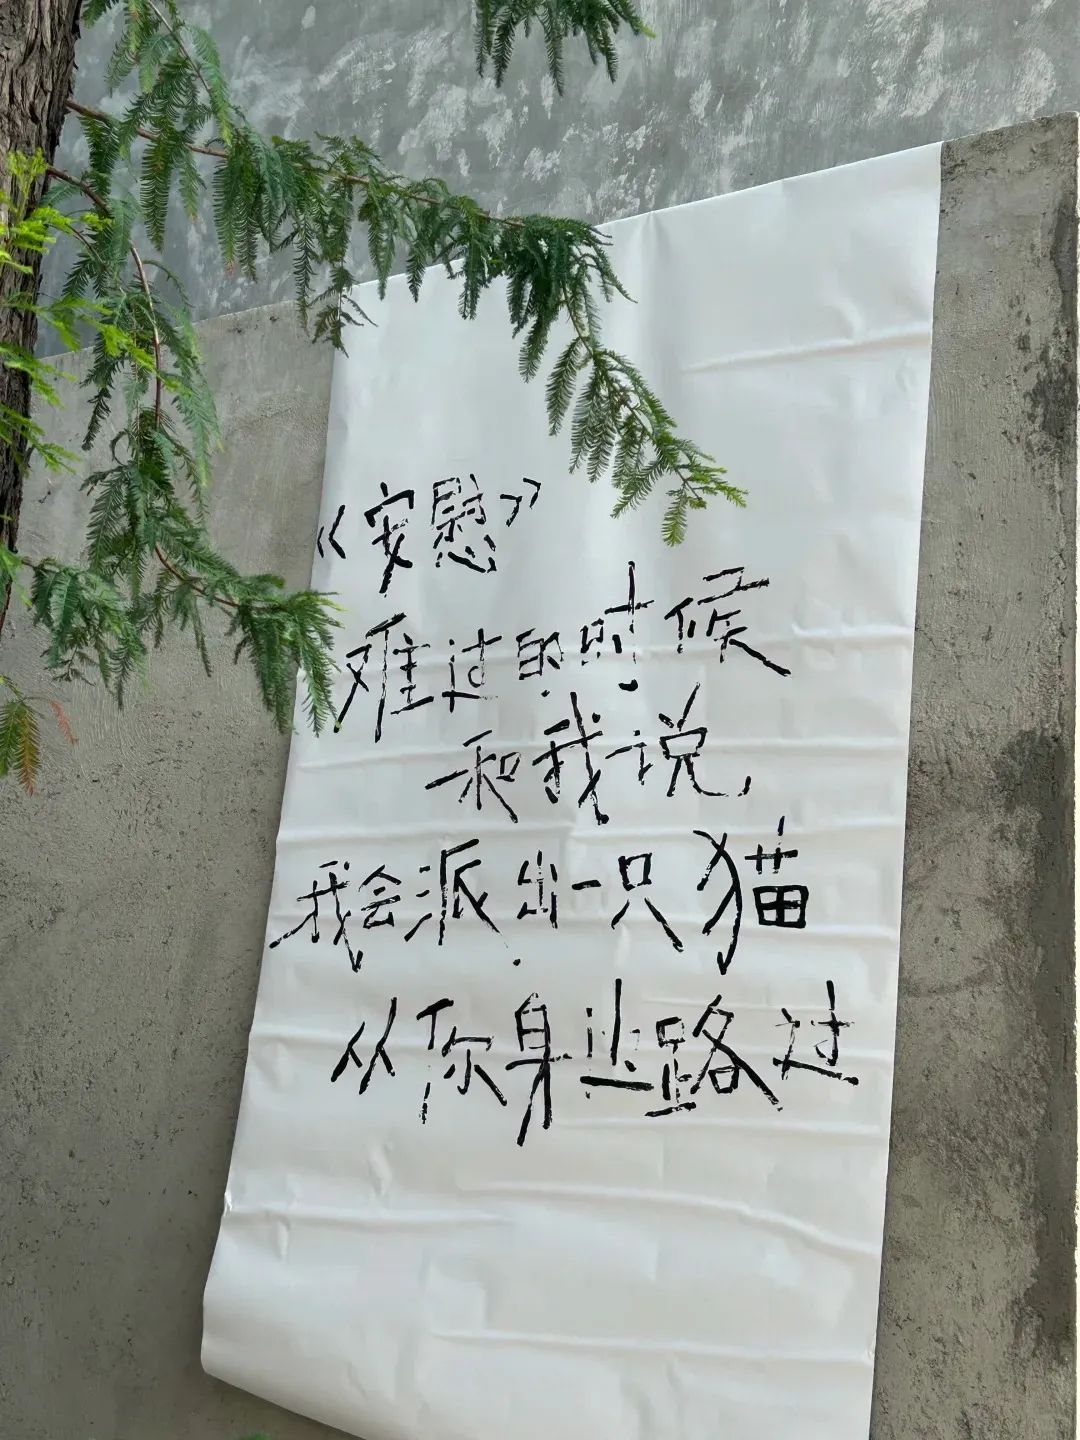 《安慰》
难过的时候
和我说,
我会派出一只猫
从你身边路过